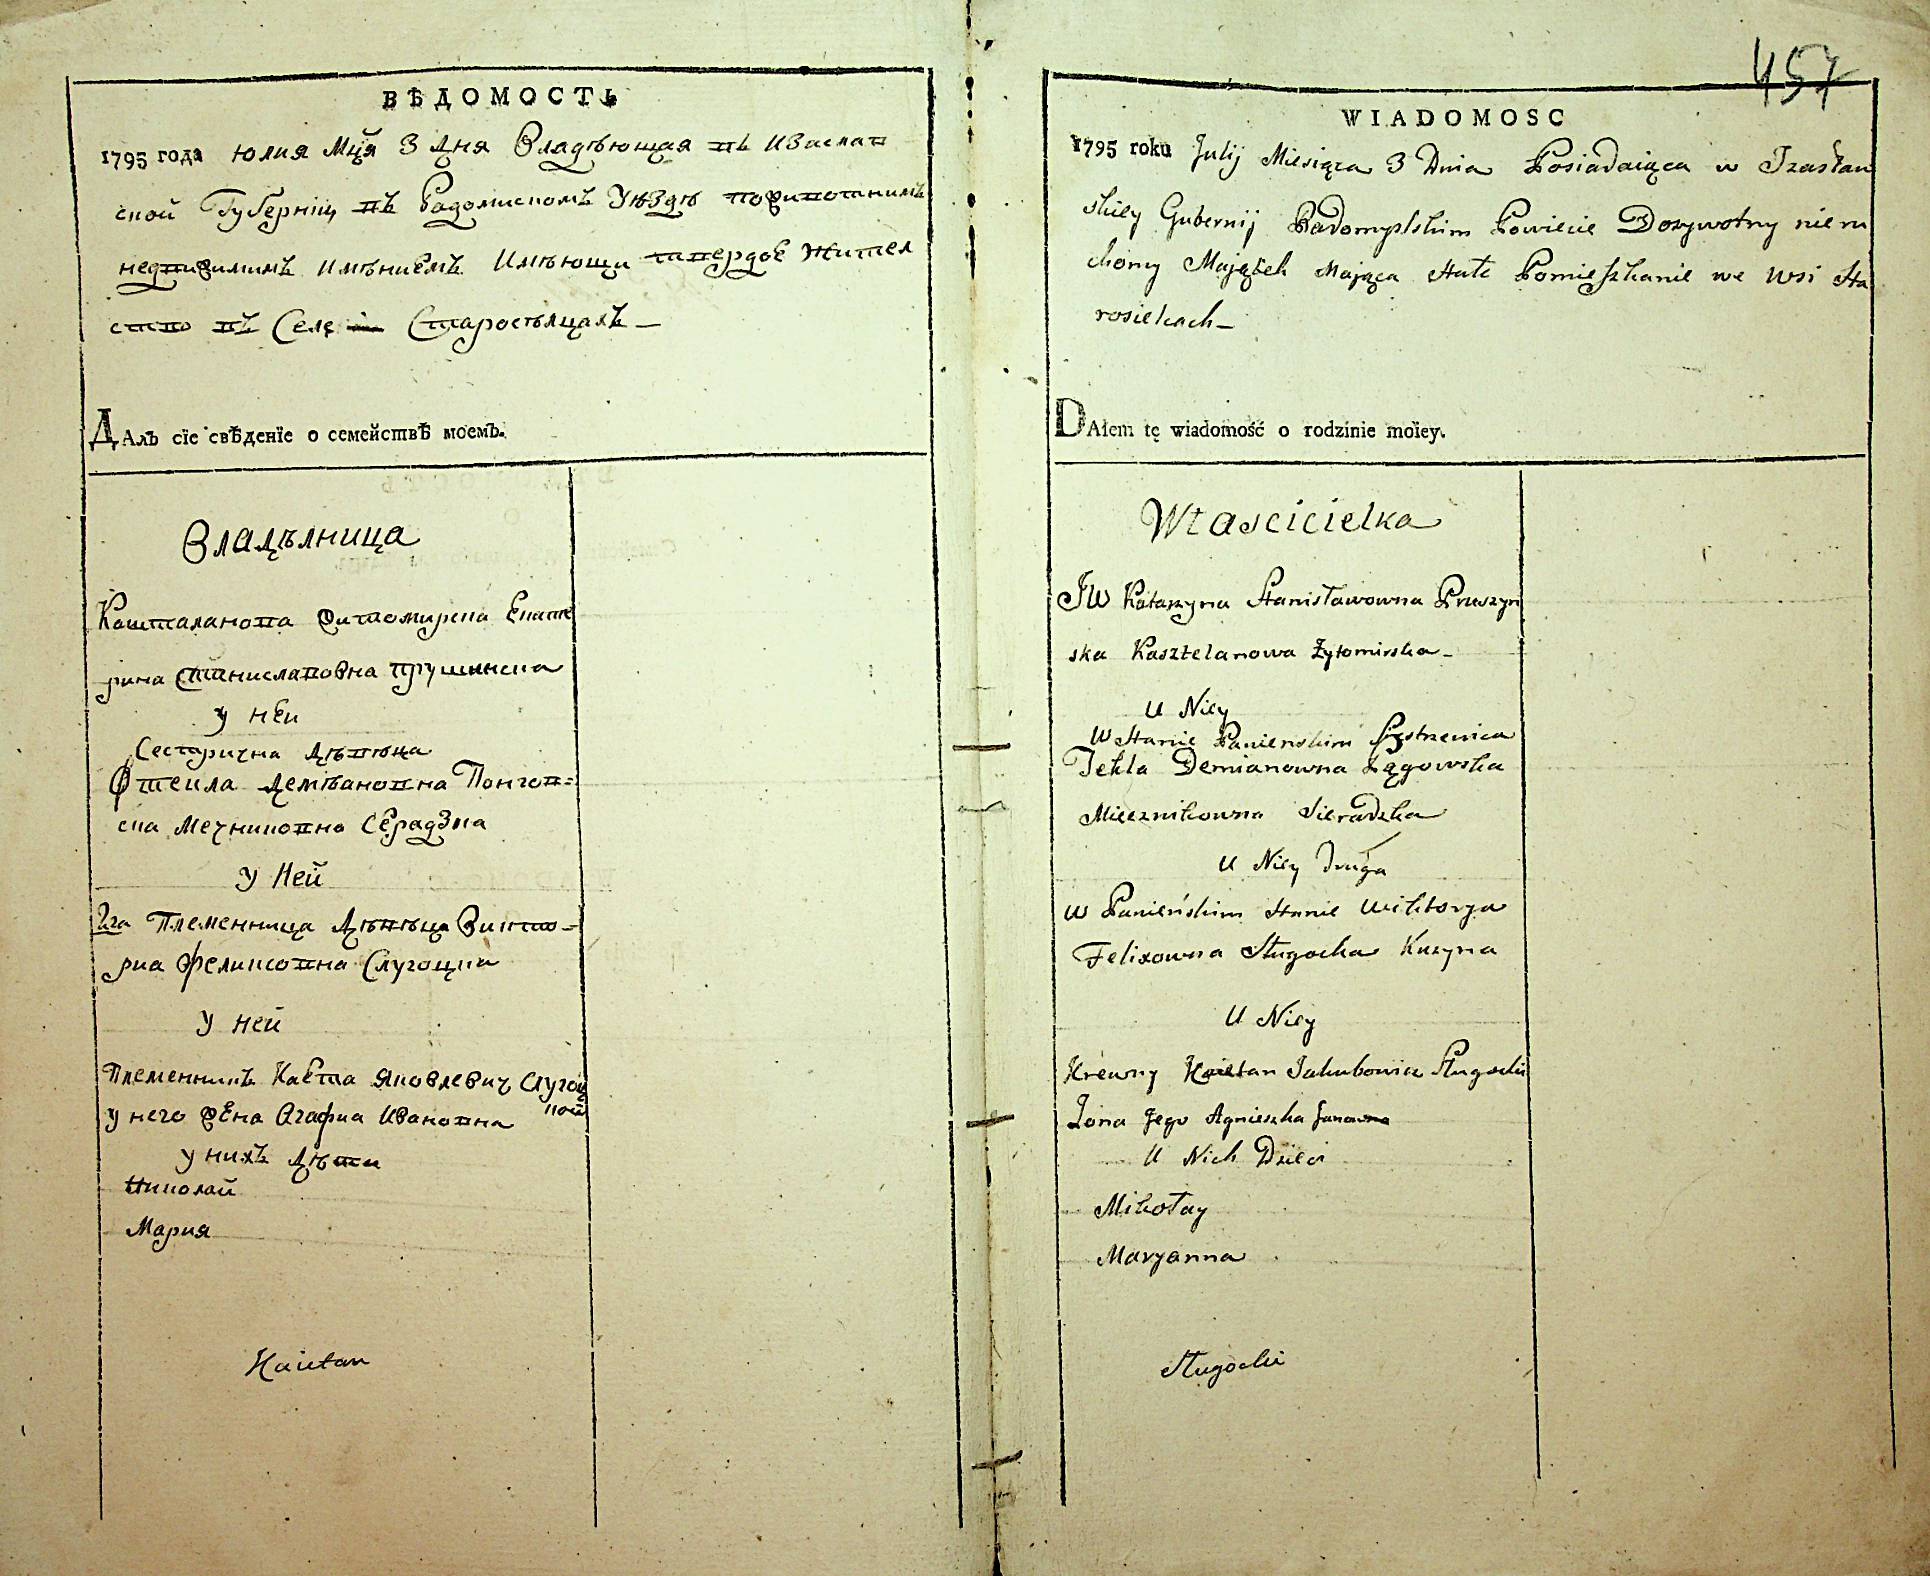 ВѢДОМОСТЬ
1795 года Юлия Мця 3 дня Владѣющая въ Изаслав
ской Губернїи въ Радомискомъ Уѣздѣ
недвижимимъ имѣниемъ Имѣющи твердое Жител
ство въ Селе Староселцахъ
ДАлъ сїе свѣденїе о семействѣ моемъ.
Владѣлница
Кашталанова Житомирска Екате
рина Станиславовна Прушинска
У неи
Сестрична Дѣвица
Фтекла Демѣановна Лонгов=
ска Мечниковна Серадзка
У Ней
2га Племенница Дѣвица Викто=
риа Феликсовна Слугоцка
У ней
Племенникъ Каета Яковлевич Слугоц
кой
у него жена Агафиа Ивановна
у нихъ дѣти
Николай
Мария
Kaietan
457
WIADOMOSC
1795 roku Julij Miesiąca 3 Dnia Posiadaiąca w Izasław
skiey Gubernij Radomyslskim Powiecie Dozywotny nieru
chomy Majątek Mająca Stałe Pomieszkanie we wsi Sta
rosielcach
DAłem tę wiadomość o rodzinie moïey.
Własciciełka
JW Katarzyna Stanisławowna Pruszyn
ska Kasztelanowa Żytomirska
U Niey
W Stanie Panienskim Siestrzenica
Tekla Demianowna Łągowska
Miecznikowna Sieradzka
U Niey Druga
W Panieńskim Stanie Wiktorya
Felixowna Sługocka Kuzyna
U Niey
Krewny Kaietan Jakubowicz Sługocki
Żona Jego Agnieszka Janowna
U Nich Dzieci
Mikołay
Maryanna
Sługocki